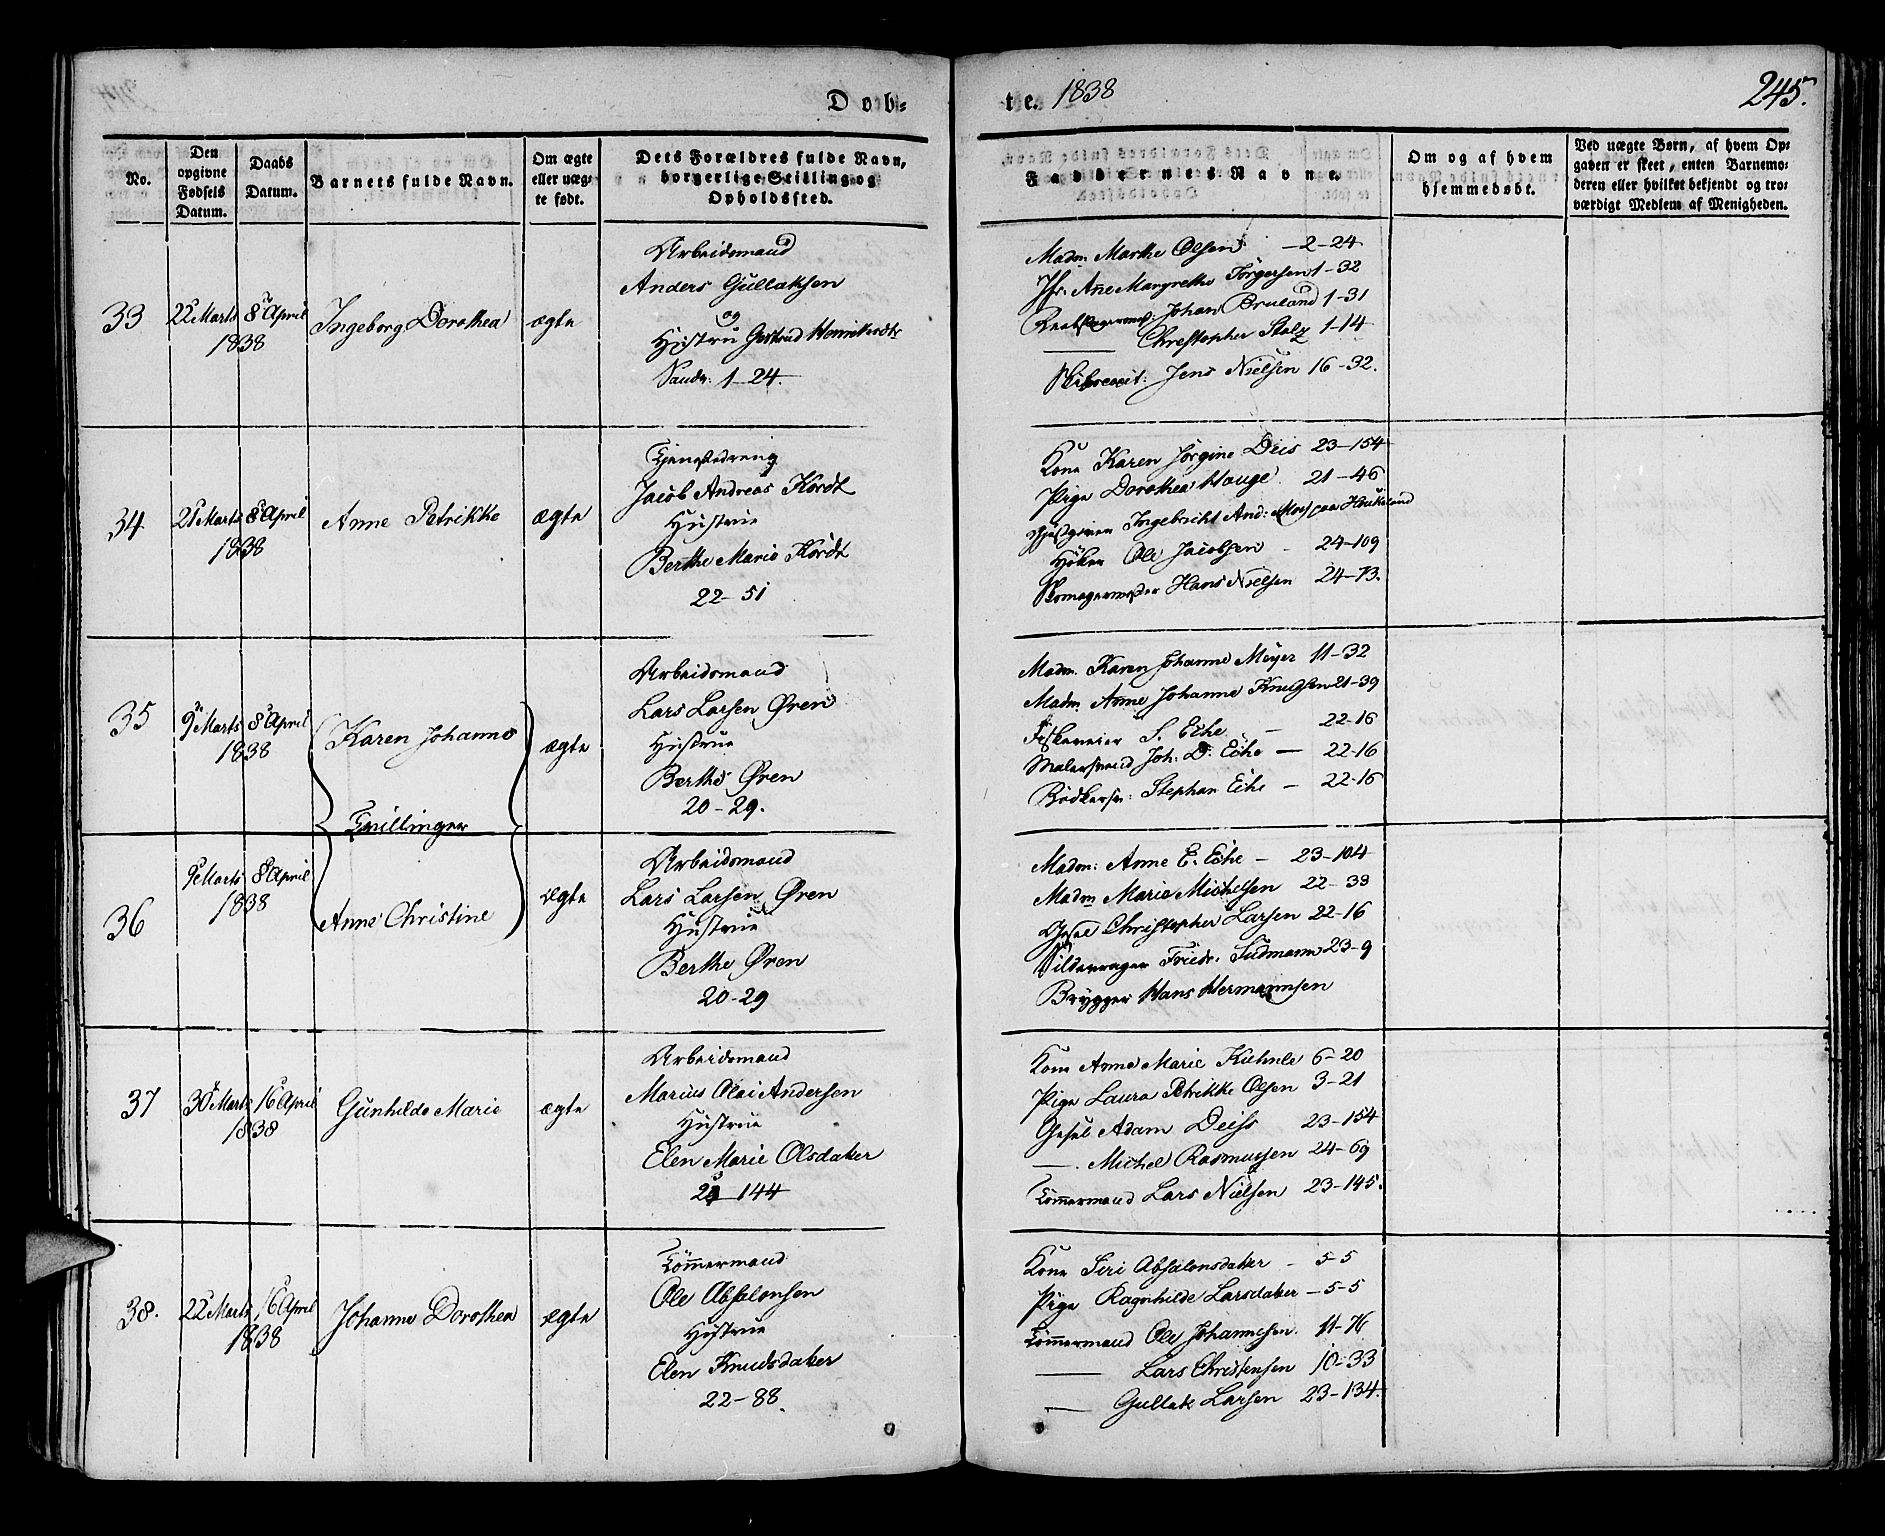 Døb-
te. 1838
245.
No.
Den opgivne Fødsels Datum.
Daabs Datum.
Barnets fulde Navn.
Om ægte eller uægte født.
Dets Forældres fulde Navn, borgerlige Stilling og Opholdssted.
Faddernes Navne.
Om og af hvem hjemmedøbt.
Ved uægte Børn, af hvem Opgaven er skeet, enten Barnemoderen eller hvilket bekjendt og troværdigt Medlem af Menigheden.
33
22 Marts 8 April
1838
Ingeborg Dorothea
ægte
Arbeidsmand
Anders Gullaksen
og
Hustru Gertrud
Sandv. 1-24.
Madm. Marthe Olsen - 2-24
Jfr. Ane Margrethe Törgersen 1-32
Johan Bruland 1-31
Christopher Stolz 1-14
Jens Nielsen 16-32.
34
21 Marts 8 April
1838
Anne Petrikke
ægte
Tjenestedreng
Jacob Andreas Kordt
Hustrue
Berthe Marie Kordt
22-51
Kone Karen Jörgine Deis 23-154
Pige Dorothea Hauge 21-46
Ingebricht And: Moe paa Haukeland
Höker Ole Jacobsen - 24-109
Skomagermester Hans Nielsen 24-73.
35
9 Marts 8 April
1838
Karen Johanne
ægte
Arbeidsmand
Lars Larsen Øren
Hustrue
Berthe Øren
20-29.
Madm. Karen Johanne Meyer 11-32
Madm Anne Johanne Knugsen 21-39
S. Eche - 22-16
Malersvend Joh. D. Eche - 22-16
Bödkersv: Stephan Eche - 22-16
Tvillinger
36
9 Marts 8 April
1838
Anne Christine
ægte
Arbeidsmand
Lars Larsen Øren
Hustrue
Berthe Øren
20-29
Madm: Anne E. Eche - 23-104
Madm Marie Michelsen 22-38
Gesel Christopher Larsen 22-16
Sildevrager Friedr. Südmann 23-9
Brygger Hans Hermannsen
37
30 Marts 16 April
1838
Gunhilde Marie
ægte
Arbeidsmand
Marius Olai Andersen
Hustrue
Elen Marie Olsdatter
23-144
Kone Anne Marie Kuhnle 6-20
Pige Laura Petrikke Olsen 3-21
Gesel Adam Deiss 23-154
—. Michel Rasmussen 24-69
Tömmermand Lars Nielsen 23-145.
38.
22 Marts 16 April
1838
Johanne Dorothea
ægte
Tömmermand
Ole Absalonsen
Hustrue
Elen Knudsdatter
22-88.
Kone Seri Absalonsdatter - 5-5
Pige Ragnhilde Larsdatter - 5-5
Tömmermand Ole Johannesen. 11-76
— Lars Christensen 10-33
— Gullak Larsen 23-134.